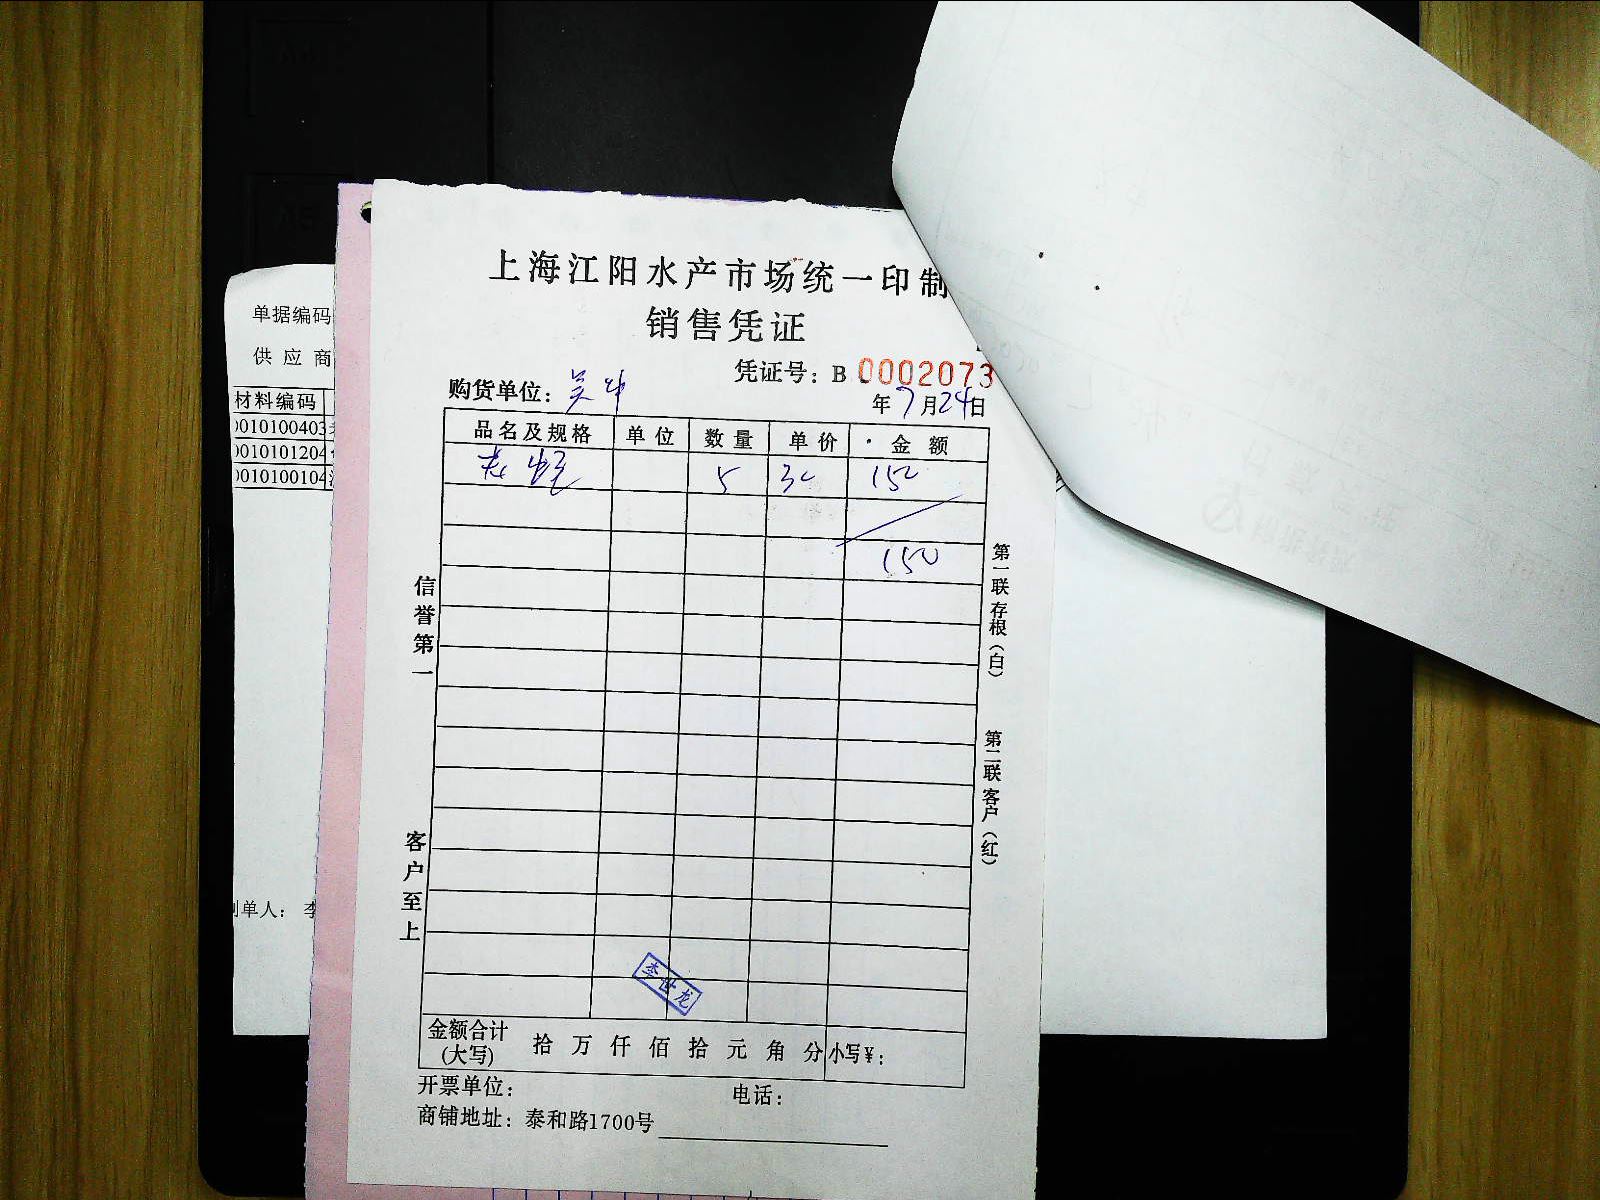 上海江阳水产市场统一印制
销售凭证
凭证号：B 0002073
购货单位：吴
年 7月24日
品名及规格 单位 数量 单价 金额
5 30 150
150
信誉第一
客户至上
第一联存根（白）
第二联客户（红）
李世龙
金额合计（大写） 拾 万 仟 佰 拾 元 角 分 小写¥：
开票单位： 电话：
商铺地址：泰和路1700号
单据编码
供应商
材料编码
0010100403
0010101204
0010100104
制单人：李